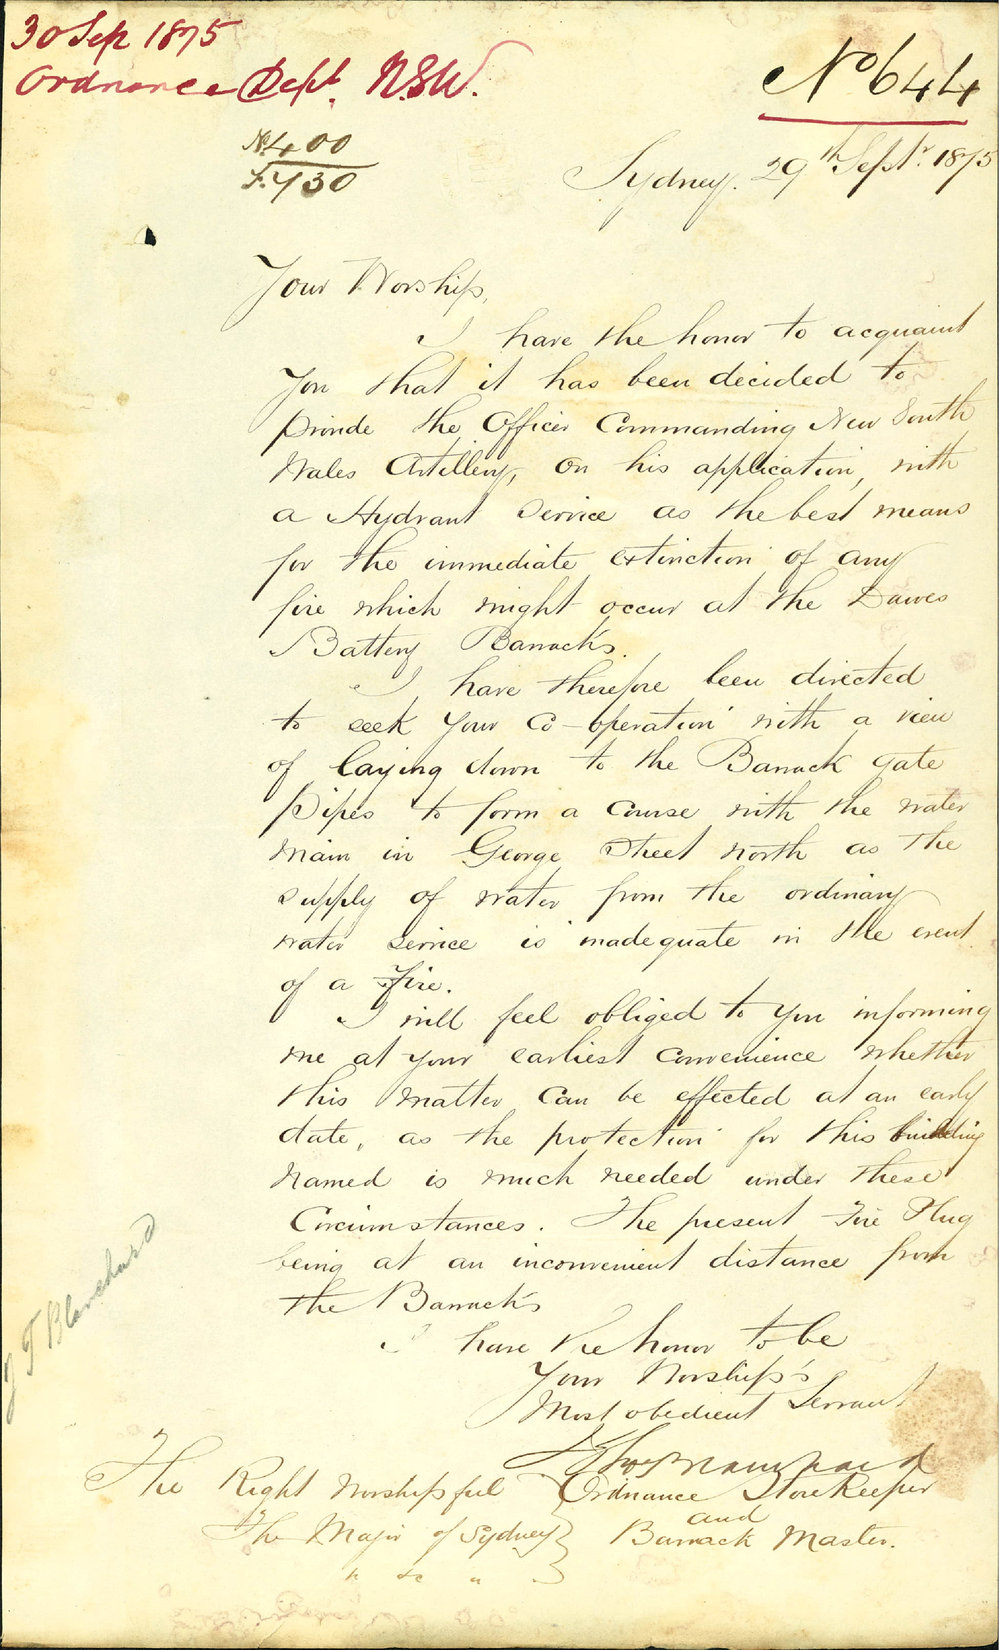 30 Sep 1875
Ordnance Dept. N.S.W.
No 644
No. 400
F. 730
Sydney. 29th Septr. 1875
Your Worship,
I have the honor to acquaint
You that it has been decided to
provide the Officer Commanding New South
Wales Artillery, on his application, with
a Hydrant Service as the best means
for the immediate extinction of any
fire which might occur at the Dawes
Battery Barracks.
I have therefore been directed
to seek your Co-operation with a view
of laying down to the Barrack Gate
pipes to form a course with the water
main in George Street north as the
supply of water from the ordinary
water service is inadequate in the event
of a Fire.
I will feel obliged to you informing
me at your earliest convenience whether
this matter can be effected at an early
date, as the protection for this building
named is much needed under these
Circumstances. The present Fire Plug
being at an inconvenient distance from
the Barracks
I have the honor to be
Your Worship's
Most obedient Servant
Ordnance Storekeeper
and
Barrack Master.
The Right Worshipful
The Mayor of Sydney
" &c "
J T Blanchard